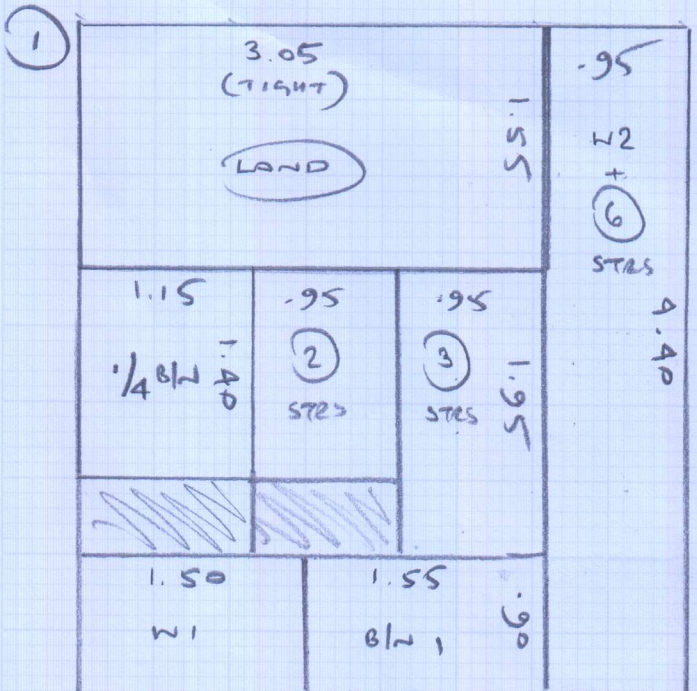 1
3.05
(TIGHT)
LAND
1.55
.95
W2
+
6
STRS
4.40
1.15
1/4 B/W
1.40
.95
2
STRS
.95
3
STRS
1.95
1.50
W1
1.55
B/W 1
.90